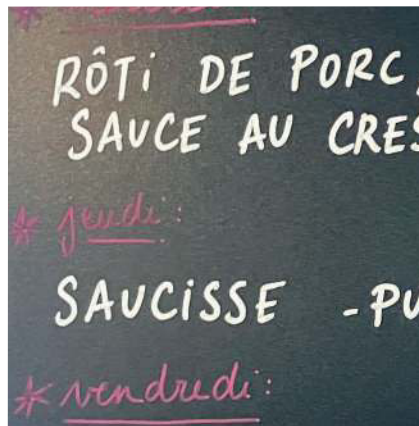 RÔTI DE PORC,
SAUCE AU CRES
* jeudi:
SAUCISSE - PU
* vendredi: